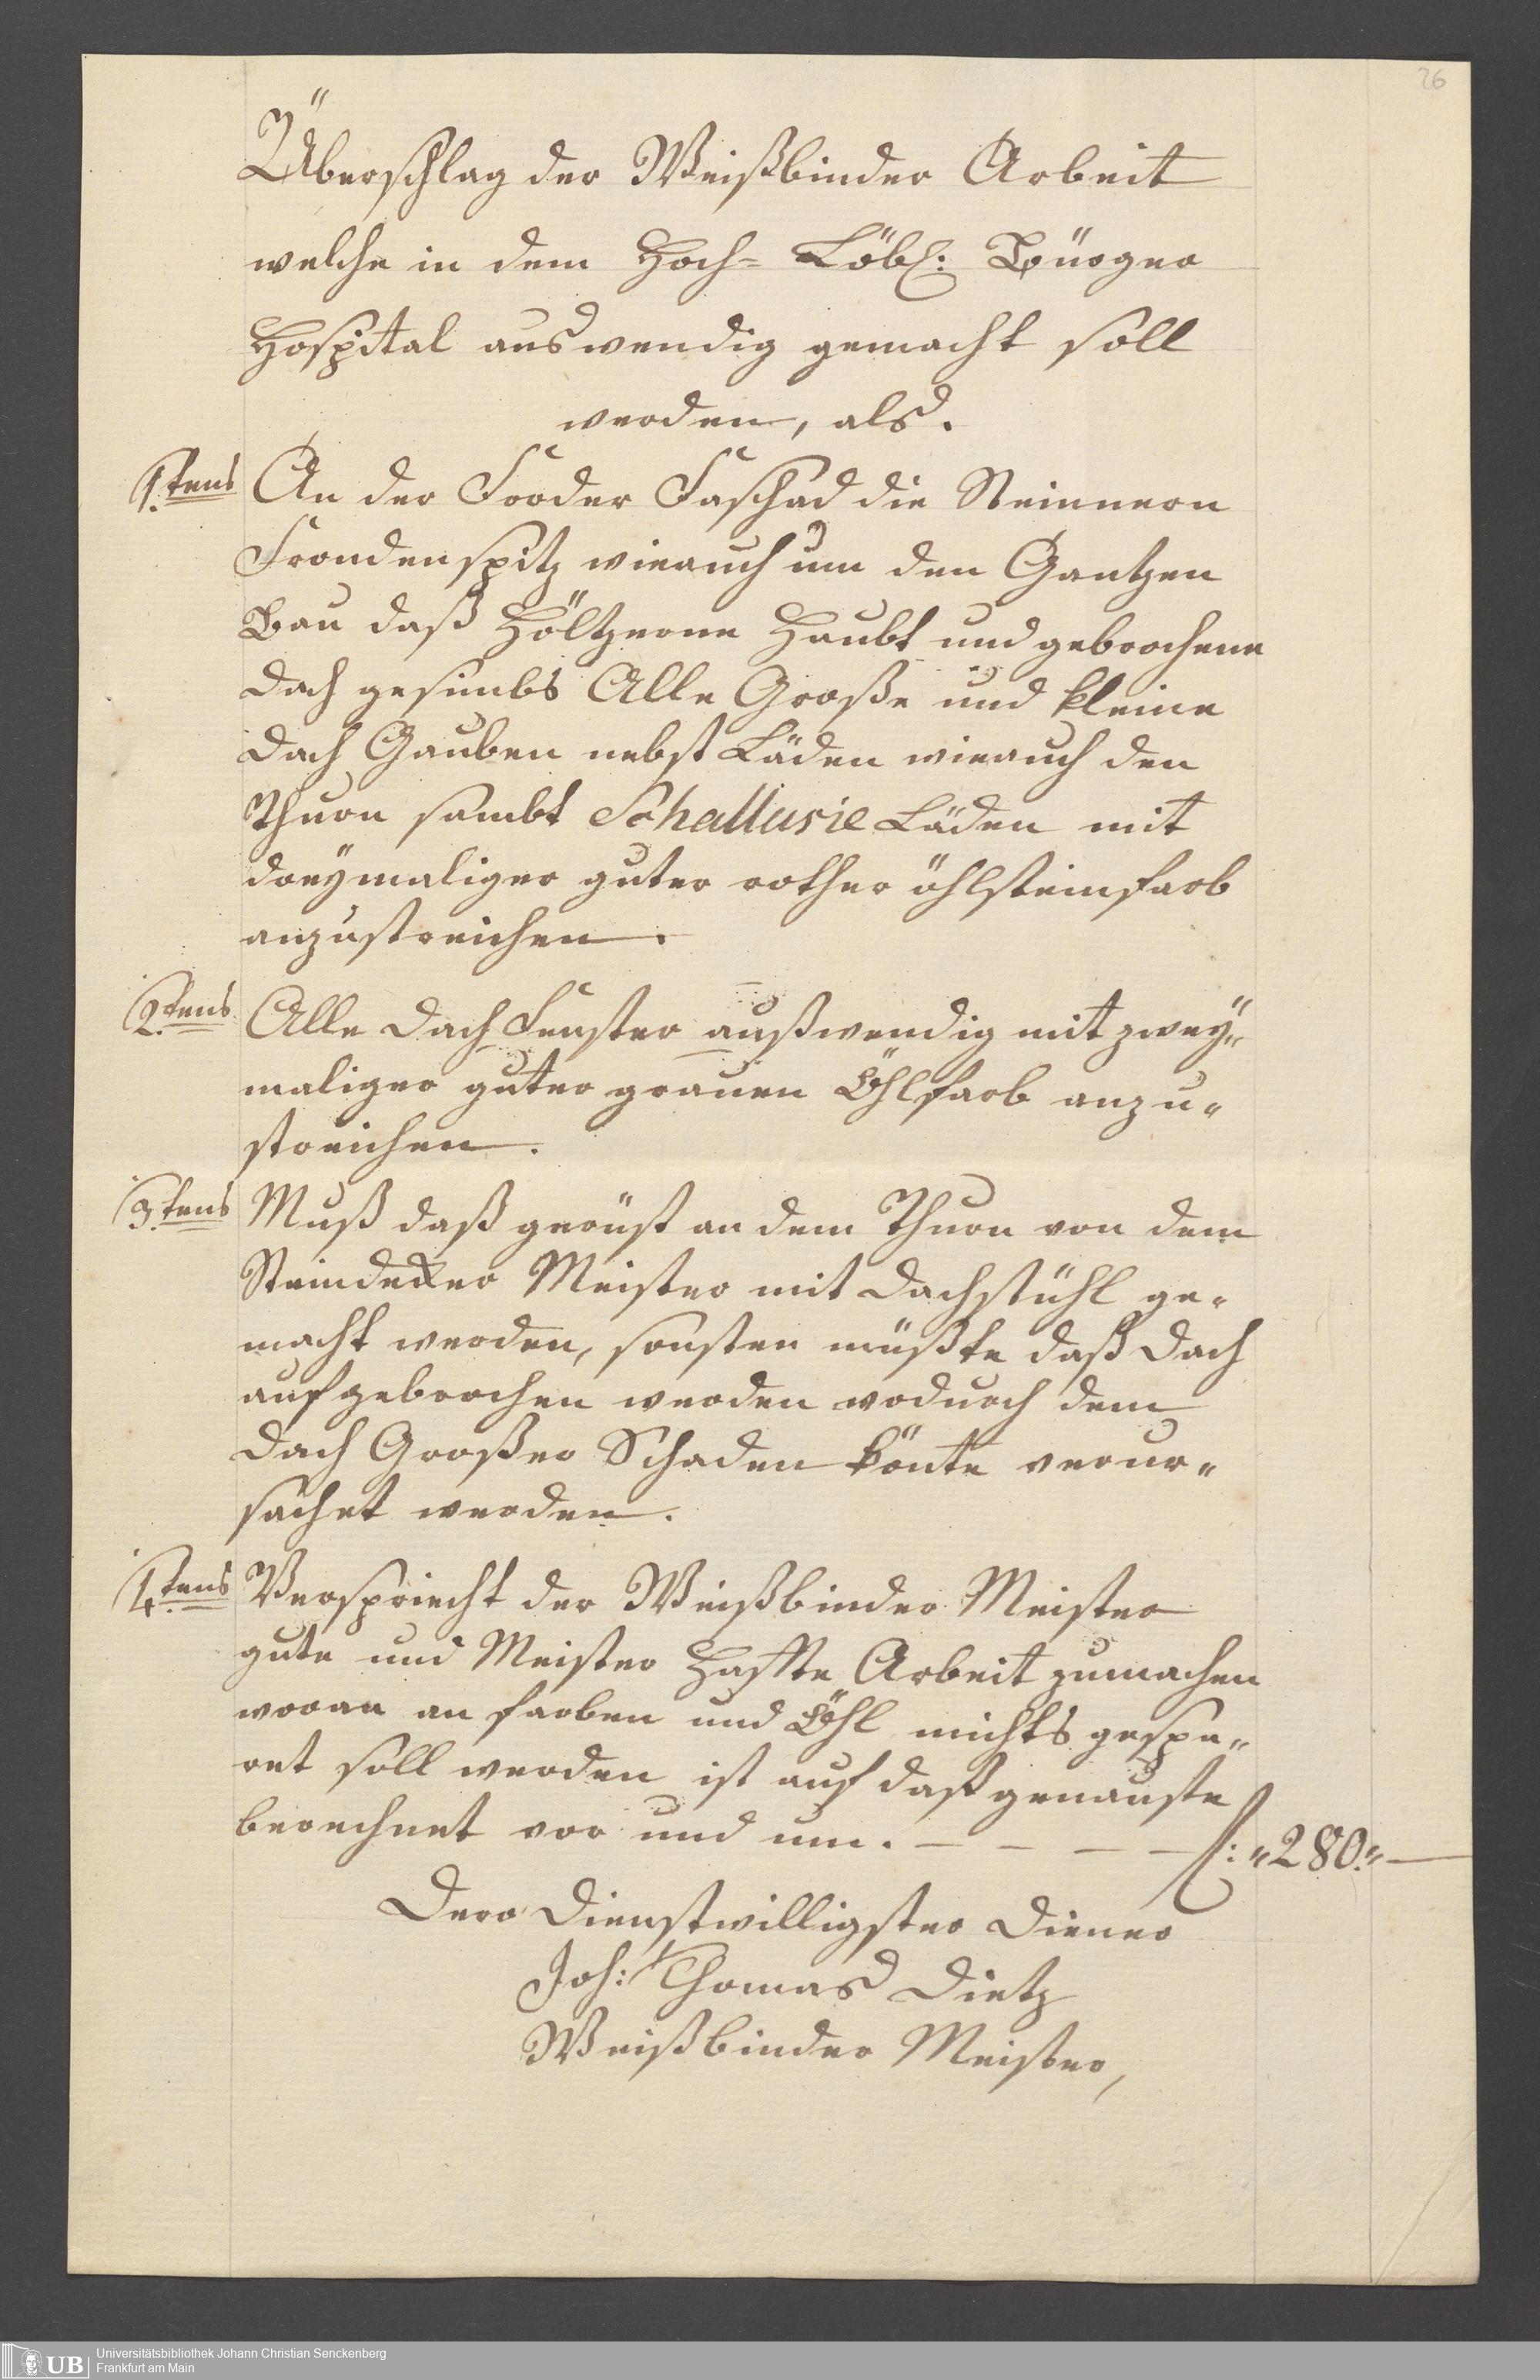 26
Überschlag der Weißbinder Arbeit
welche in dem Hoch= Löbl: Bürger
Hospital auswendig gemacht soll
werden, als.
1.tens An der Forder Faschad die Steinnern
Frondenspitz wie auch um den Gantzen
Bau daß Höltzerne Haubt und gebrochene
Dach gesimbs Alle Große und kleine
Dach Gauben nebst Läden wie auch den
Thurn sambt Schallusie Läden mit
dreÿmaliger guter rother öhlsteinfarb
anzustreichen.
2.tens Alle Dach Fenster außwendig mit zweÿ„
maliger guter grauen Öhlfarb anzu„
streichen.
3.tens Muß daß gerüst an dem Thurn von dem
Steindekker Meister mit Dachstühl ge„
macht werden, sonsten müßte daß Dach
aufgebrochen werden wodurch dem
Dach Großer Schaden könte verur„
sachet werden.
4.tens Verspriecht der Weißbinder Meister
gute und Meister Haffte Arbeit zumachen
woran an farben und Öhl nichts gespa„
ret soll werden ist auf daß genauste
berechnet vor und um. — — — — f: „280.„—
Dero Dienstwilligster Diener
Joh: Thomas Dietz
Weißbinder Meister,
UB Universitätsbibliothek Johann Christian Senckenberg
Frankfurt am Main